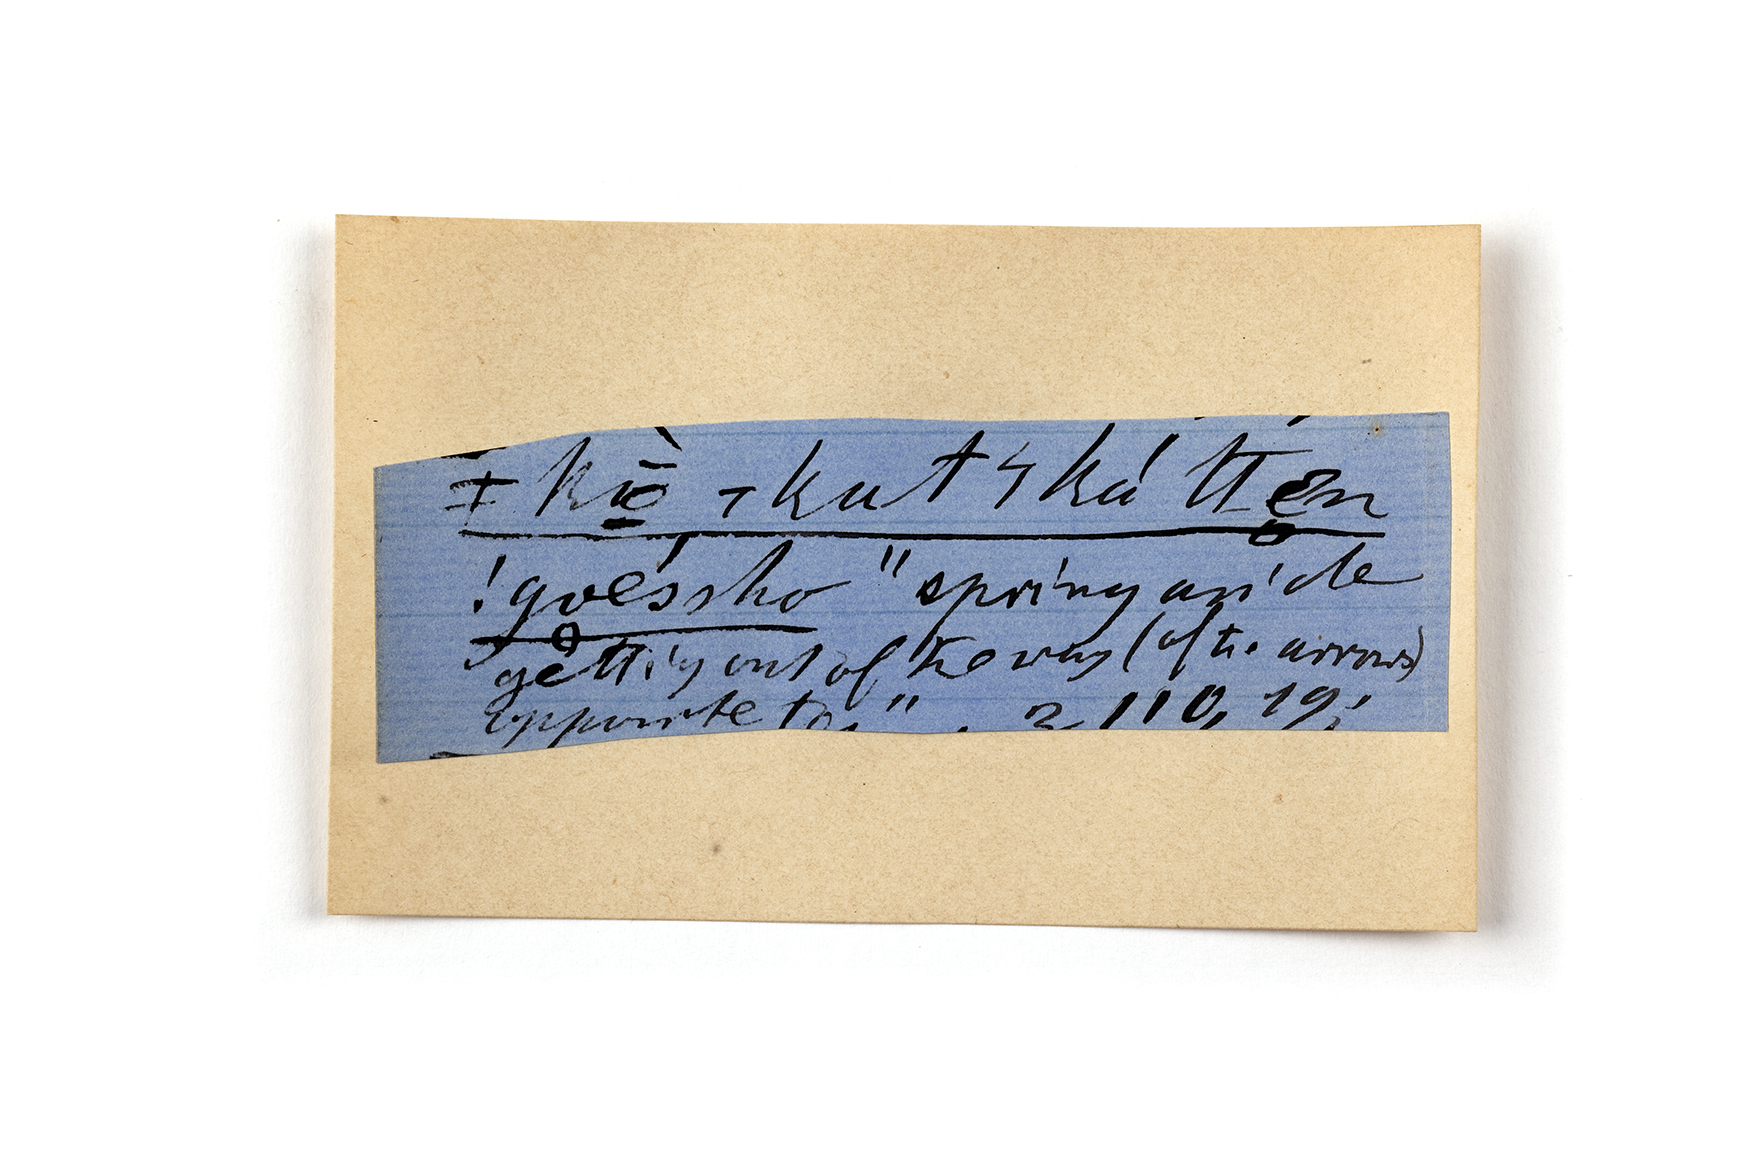 ǂkò̱-kut ϟ kú ttẹn
!gvésshọ "spring aside
getting out of the way (of the arrows)
opposite to," . 2 110, 19;